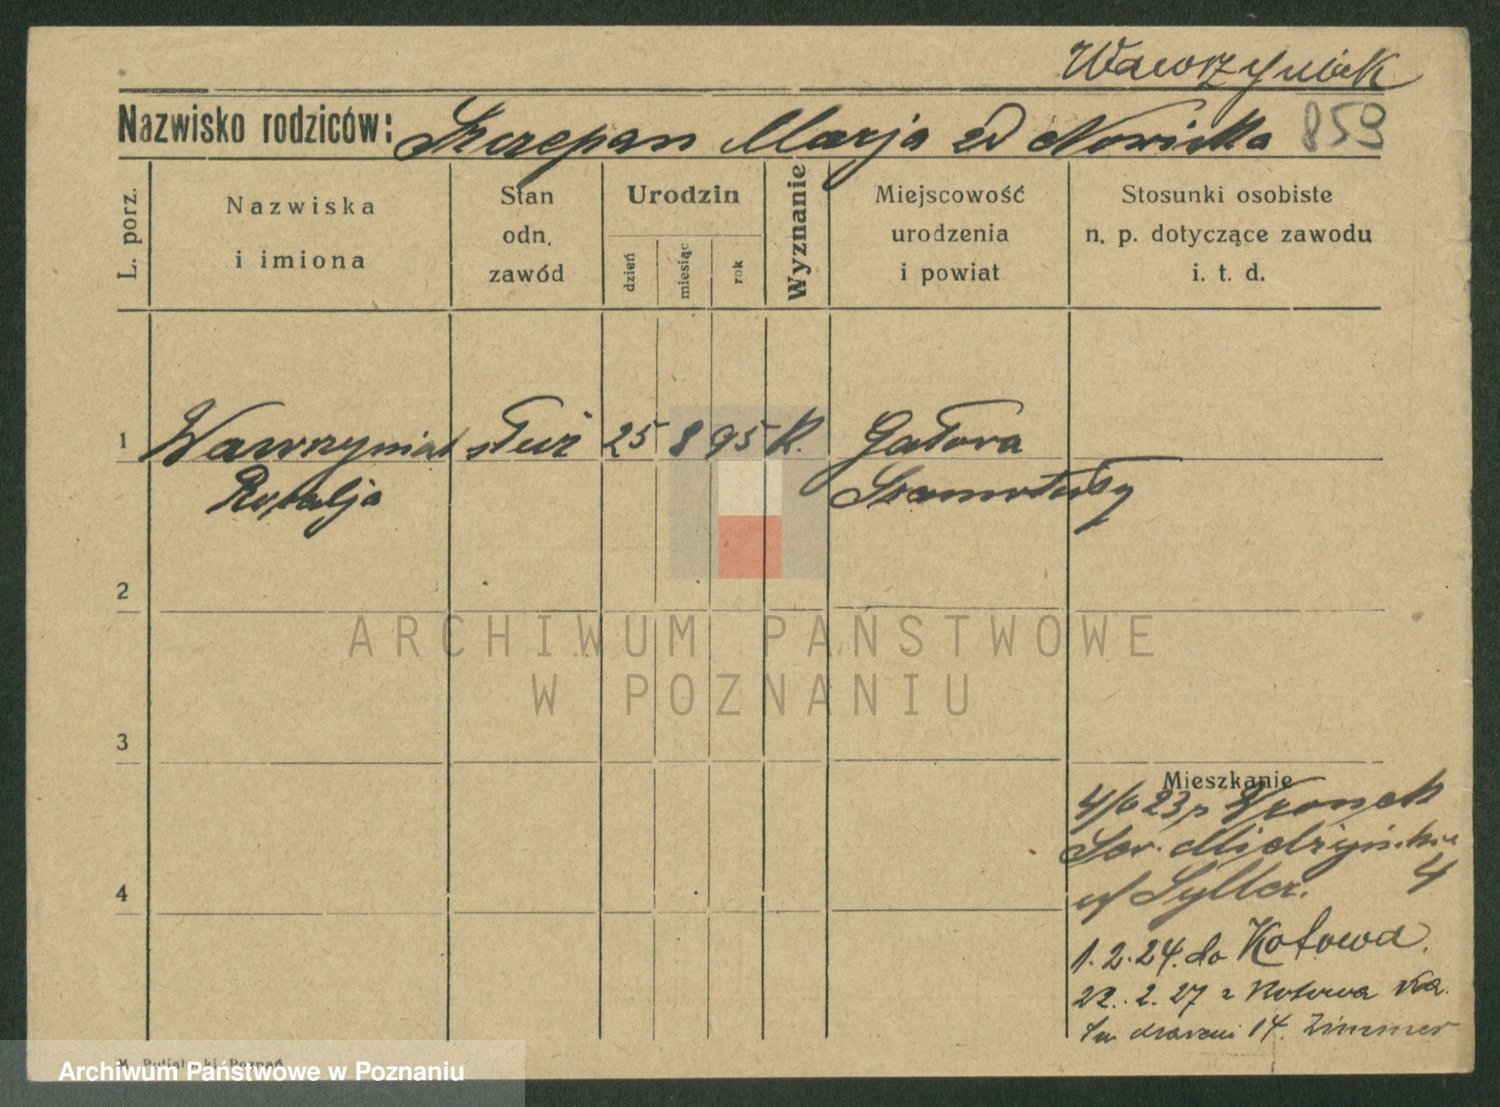 Wawrzyniak
Nazwisko rodziców: Szczepan Marja zd Nowicka 859
L. porz.
Nazwiska
i imiona
Stan
odn.
zawód
Urodzin
dzień
miesiąc
rok
Wyznanie
Miejscowość
urodzenia
i powiat
Stosunki osobiste
n. p. dotyczące zawodu
i. t. d.
1 Wawrzyniak służ 25 8 95 K. Gałowa
Rozalja Szamotuły
2
ARCHIWUM PAŃSTWOWE
W POZNANIU
3
Mieszkanie
4/6 23 z Wronek
4
4
1. 2. 24. do Kotowa.
22. 2. 27 z Kotowa
14. Zimmer
Poznań
Archiwum Państwowe w Poznaniu